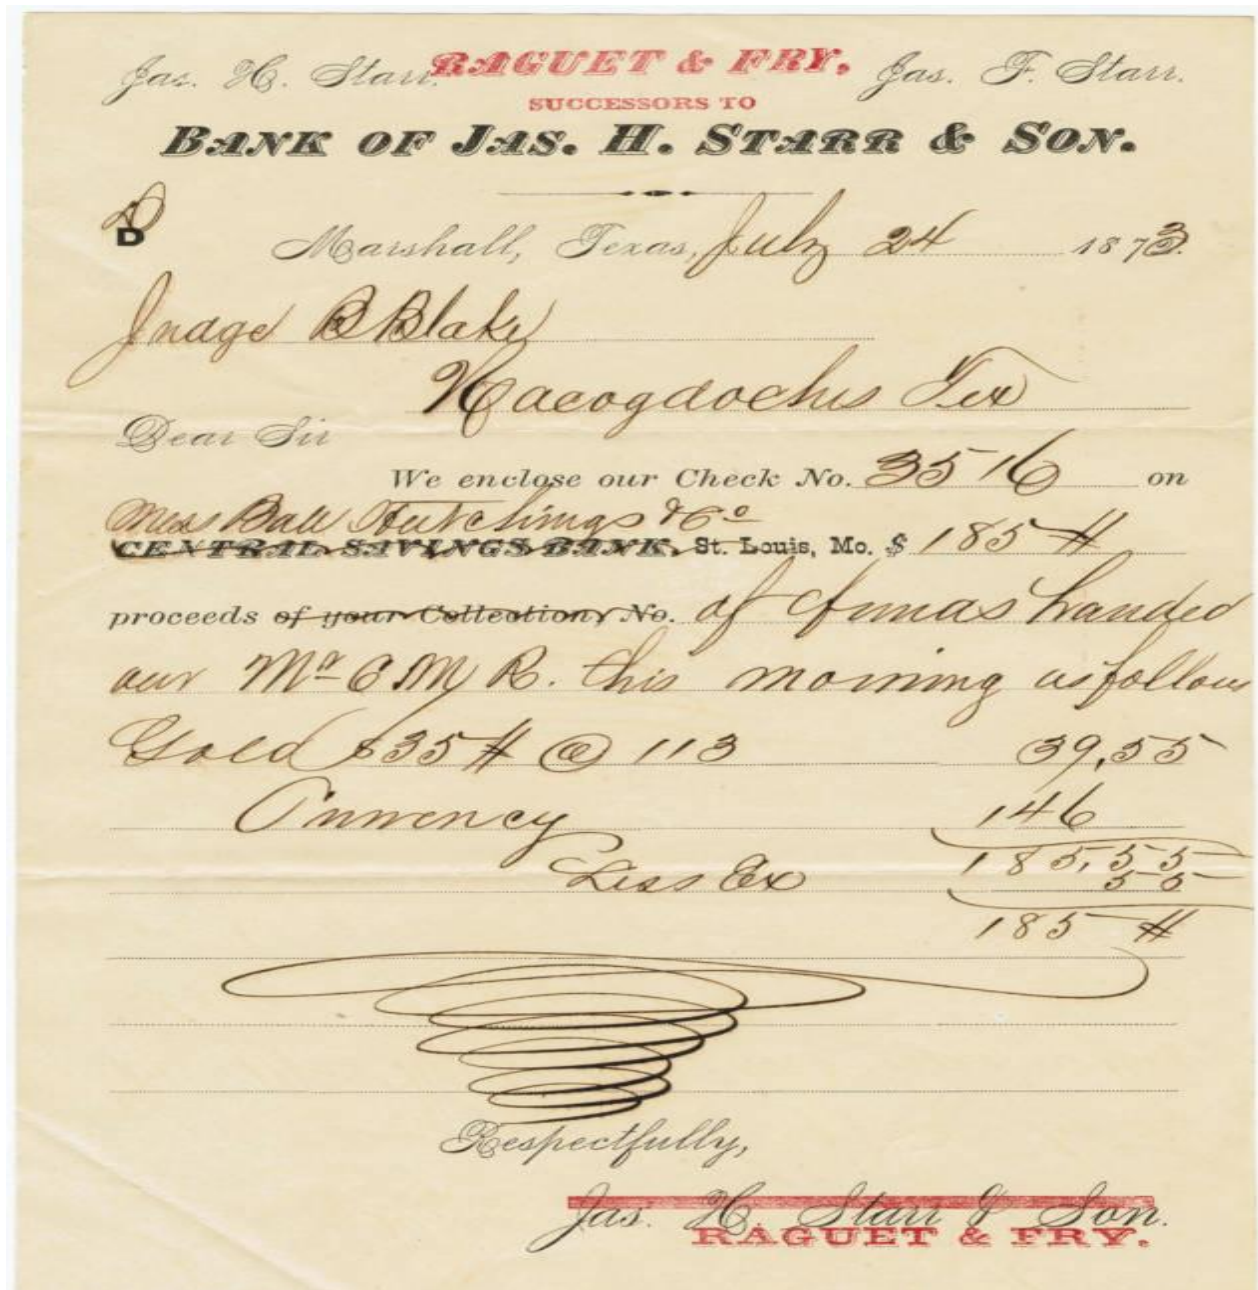 Jas. H. Starr. RAGUET & FRY, Jas. F. Starr.
SUCCESSORS TO
BANK OF JAS. H. STARR & SON.
D
Marshall, Texas, July 24 1873.
Judge B Blake
Nacogdoches Tex
Dear Sir
We enclose our Check No. 3516 on
Mess Ball Hutchings & Co
CENTRAL SAVINGS BANK, St. Louis, Mo. $ 185 #
proceeds of your Collection, No. of handed
our Mr C M R. this morning as follows
Gold $35 # @ 113 39,55
Currency 146
185,55
Less Ex 55
185 #
Respectfully,
Jas. H. Starr & Son.
RAGUET & FRY.